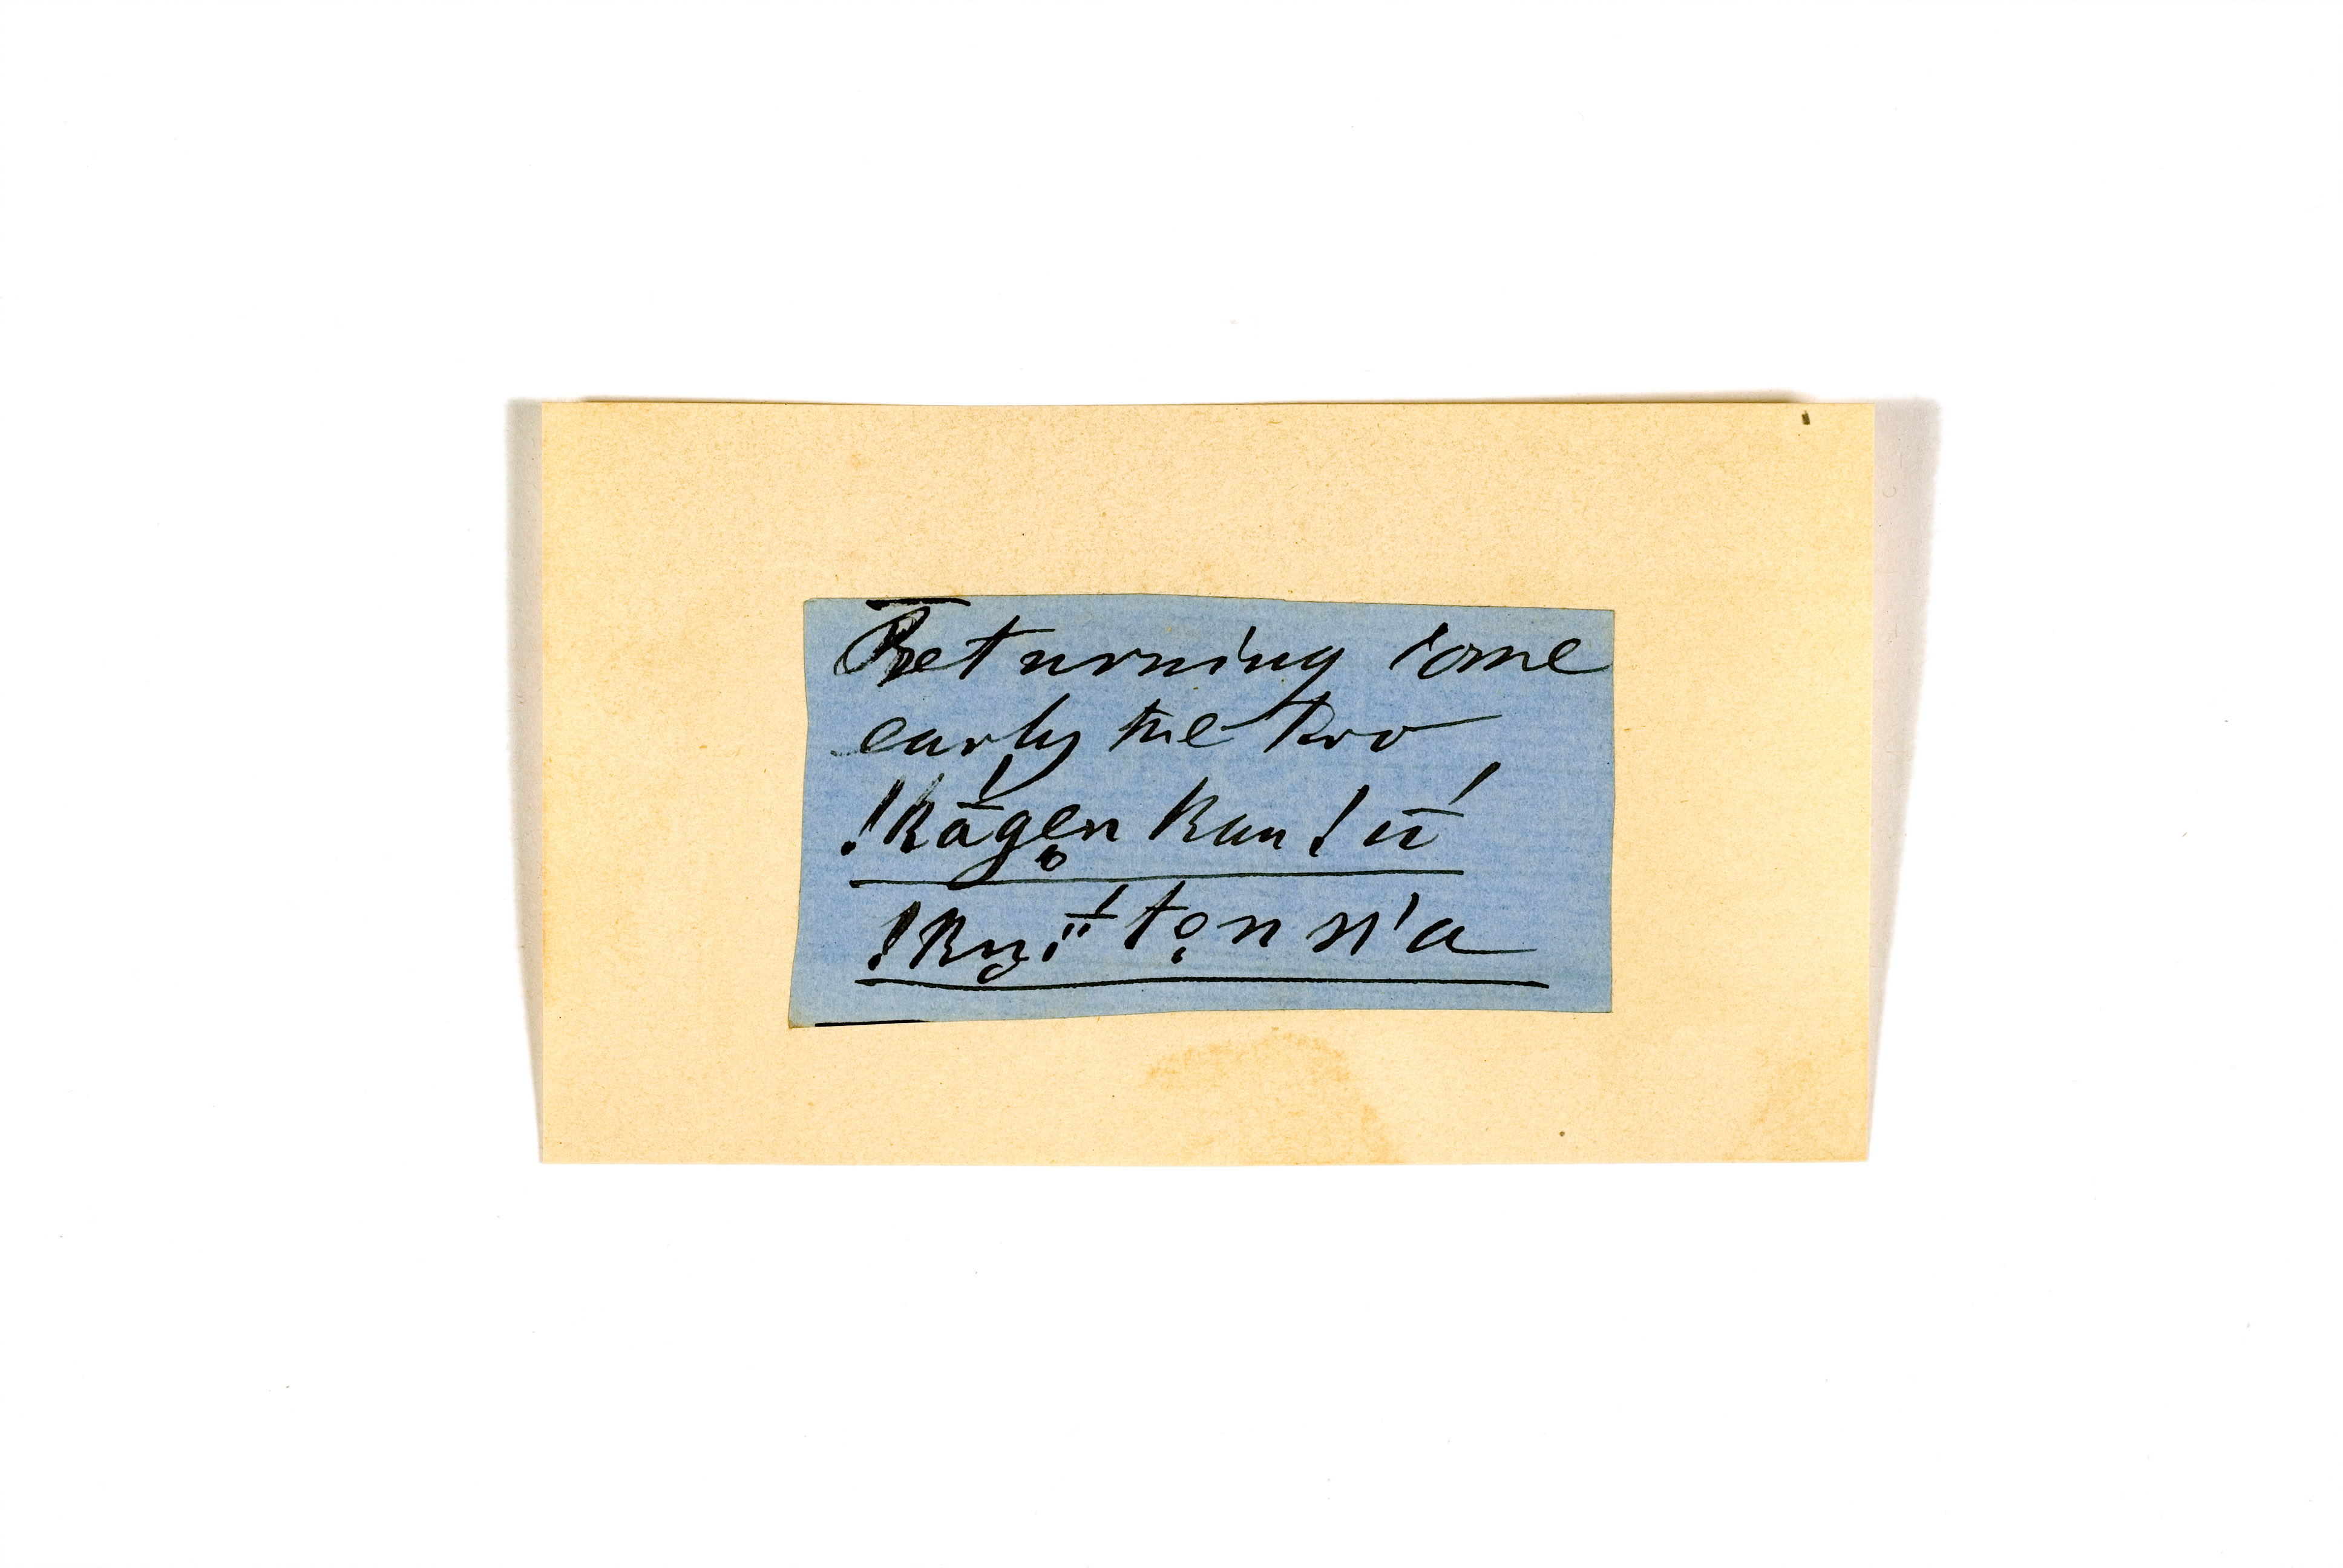 Returning home
early the two
!kā́gẹn kau ! ū́
!kuï̄́ tọn n'a